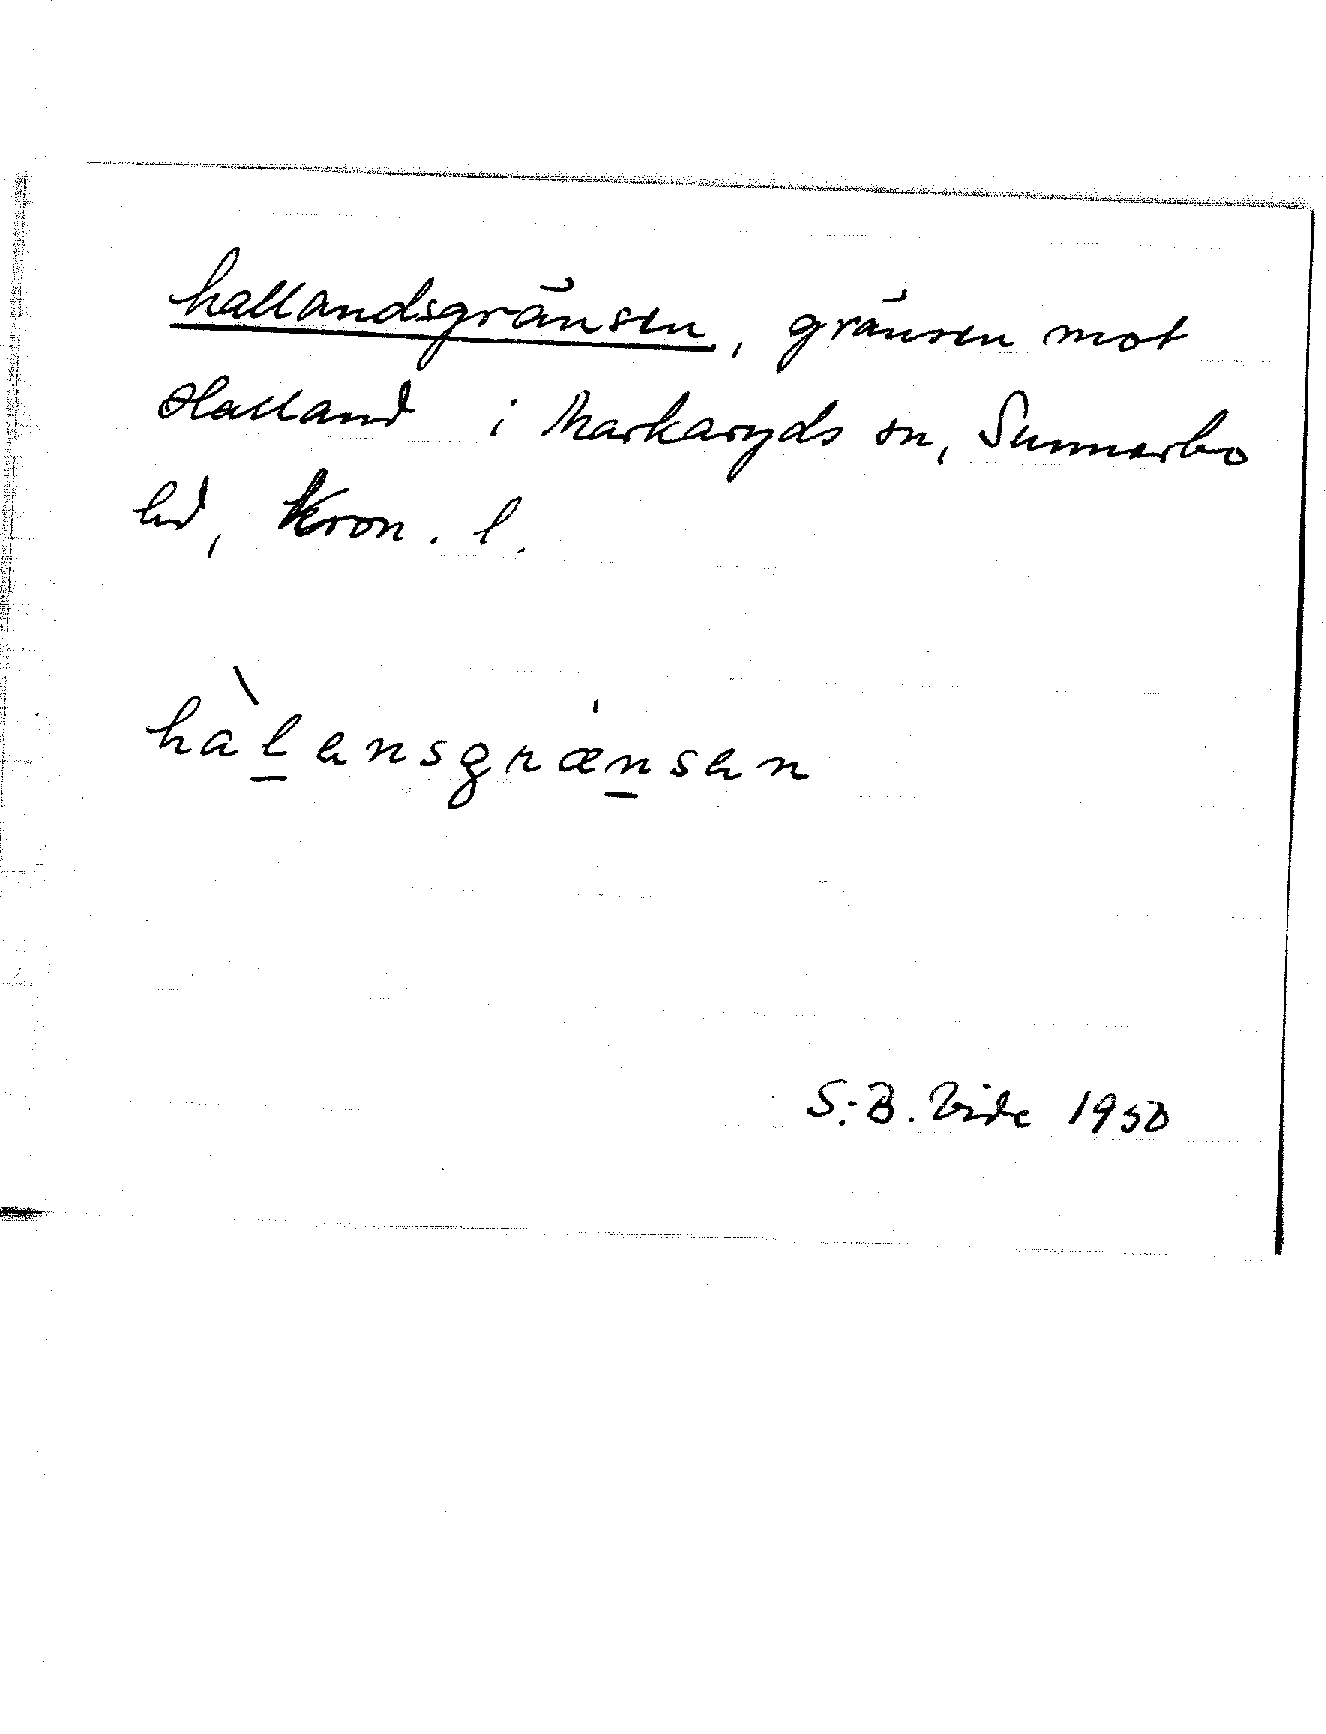 hallandsgränsen, gränsen mot
Halland i Markaryds sn, Sunnerbo
hd, Kron. l.
hàlansgrænsan
S.-B. Vide 1950